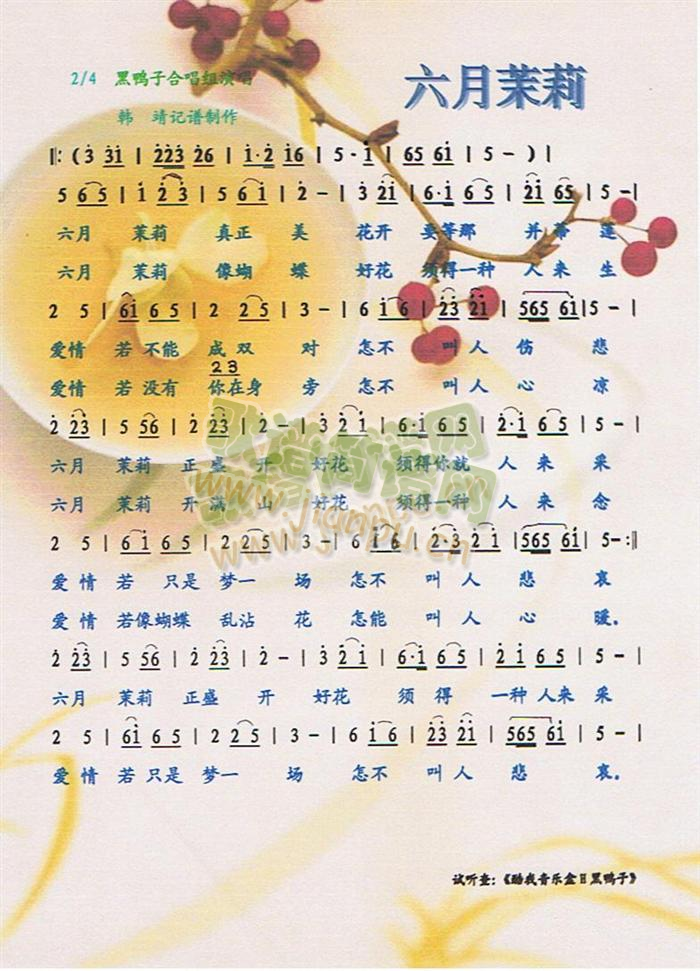 六月茉莉
2/4 黑鸭子合唱组演唱
韩 靖记谱制作
‖:(3 3̇1̇ | 2̇2̇3̇ 2̇6 | 1̇·2̇ 1̇6 | 5·1̇ | 65 61̇ | 5 - )|
5 65 | 1̇ 2̇3̇ | 5 61̇ | 2̇ - | 3̇ 2̇1̇ | 6·1̇ 65 | 2̇1̇ 65 | 5 -|
六月 茉莉 真正 美 花开 要等那 并蒂 莲
六月 茉莉 像蝴 蝶 好花 须得一种 人来 生
2 5 | 61̇ 65 | 2 25 | 3 - | 6 1̇6 | 2̇3̇ 2̇1̇ | 565 61̇ | 5 -|
爱情 若不能 成双 对 怎不 叫人 伤 悲
23
爱情 若没有 你在身 旁 怎不 叫人 心 凉
2̇ 2̇3̇ | 5 56 | 2̇ 2̇3̇ | 2̇ - | 3̇ 2̇1̇ | 6·1̇ 65 | 2̇1̇ 65 | 5 - |
六月 茉莉 正盛 开 好花 须得你就 人来 采
六月 茉莉 开满 山 好花 须得一种 人来 念
2 5 | 61̇ 65 | 2 25 | 3 - | 6 1̇6 | 2̇·3̇ 2̇1̇ | 565 61̇ | 5 -:‖
爱情 若 只是 梦一 场 怎不 叫人 悲 哀
爱情 若像蝴蝶 乱沾 花 怎能 叫人 心 暖。
2̇ 2̇3̇ | 5 56 | 2̇ 2̇3̇ | 2̇ - | 3̇ 2̇1̇ | 6·1̇ 65 | 2̇1̇ 65 | 5 - |
六月 茉莉 正盛 开 好花 须 得 一种 人来 采
2 5 | 61̇ 65 | 2 25 | 3 - | 6 1̇6 | 2̇3̇ 2̇1̇ | 565 61̇ | 5 - |
爱情 若 只是 梦一 场 怎不 叫人 悲 哀。
试听查:《酷我音乐盒Ⅱ黑鸭子》